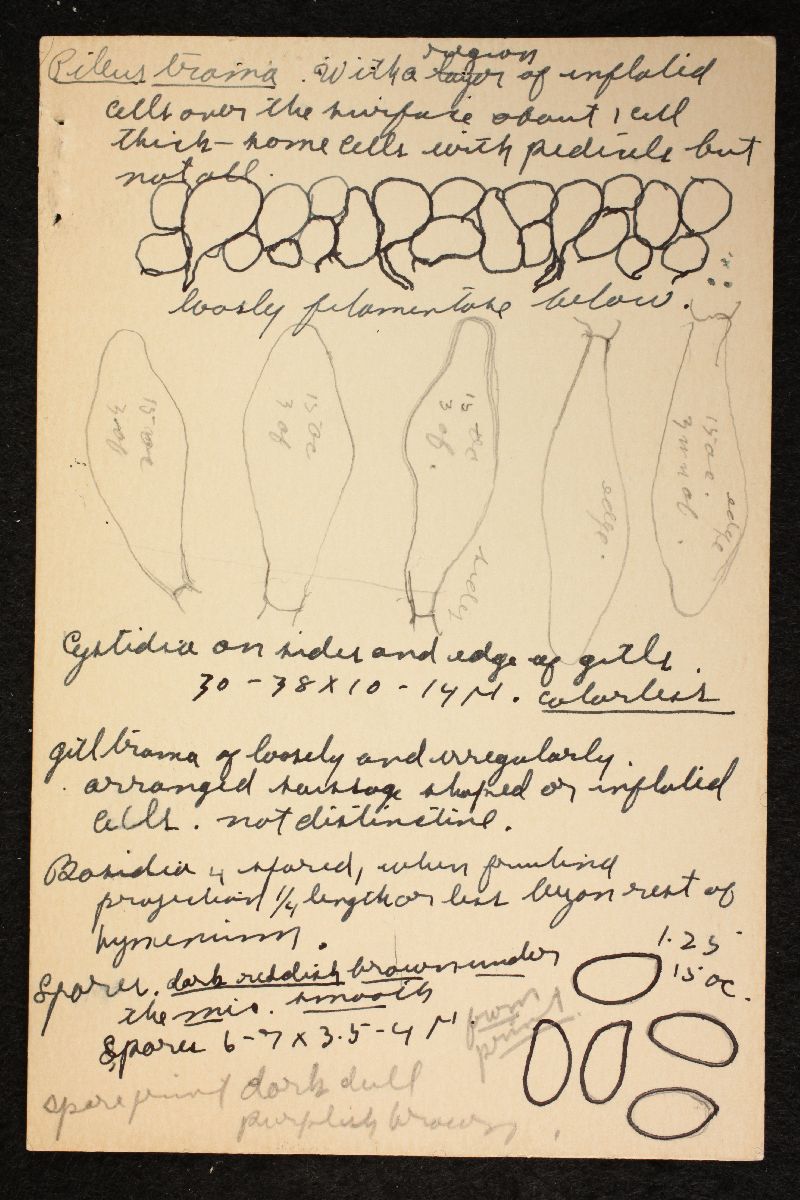 Pileus trama. With a region of inflatid
cells over the surface about 1 cell
thick - some cells with pedicels but
not all.
loosly filamentose below.
15 oc
3 ob
15 oc
3 ob
15 oc
3 ob.
sides
edge.
15 oc.
3 mm ob.
edge
Cystidia on sides and edge of gills.
30 - 38 x 10 - 14 µ. colorless
gill trama of loosely and irregularly
arranged sausage shaped or inflatid
cells. not distinctive.
Basidia 4 spored, when
projection 1/4 length or less beyon rest of
hymenium.
Spores. dark reddish brown under
the mic. smooth
Spores 6-7 x 3.5-4 µ.
from
print.
1.25
15 oc.
spore print dark dull
purplish brown.